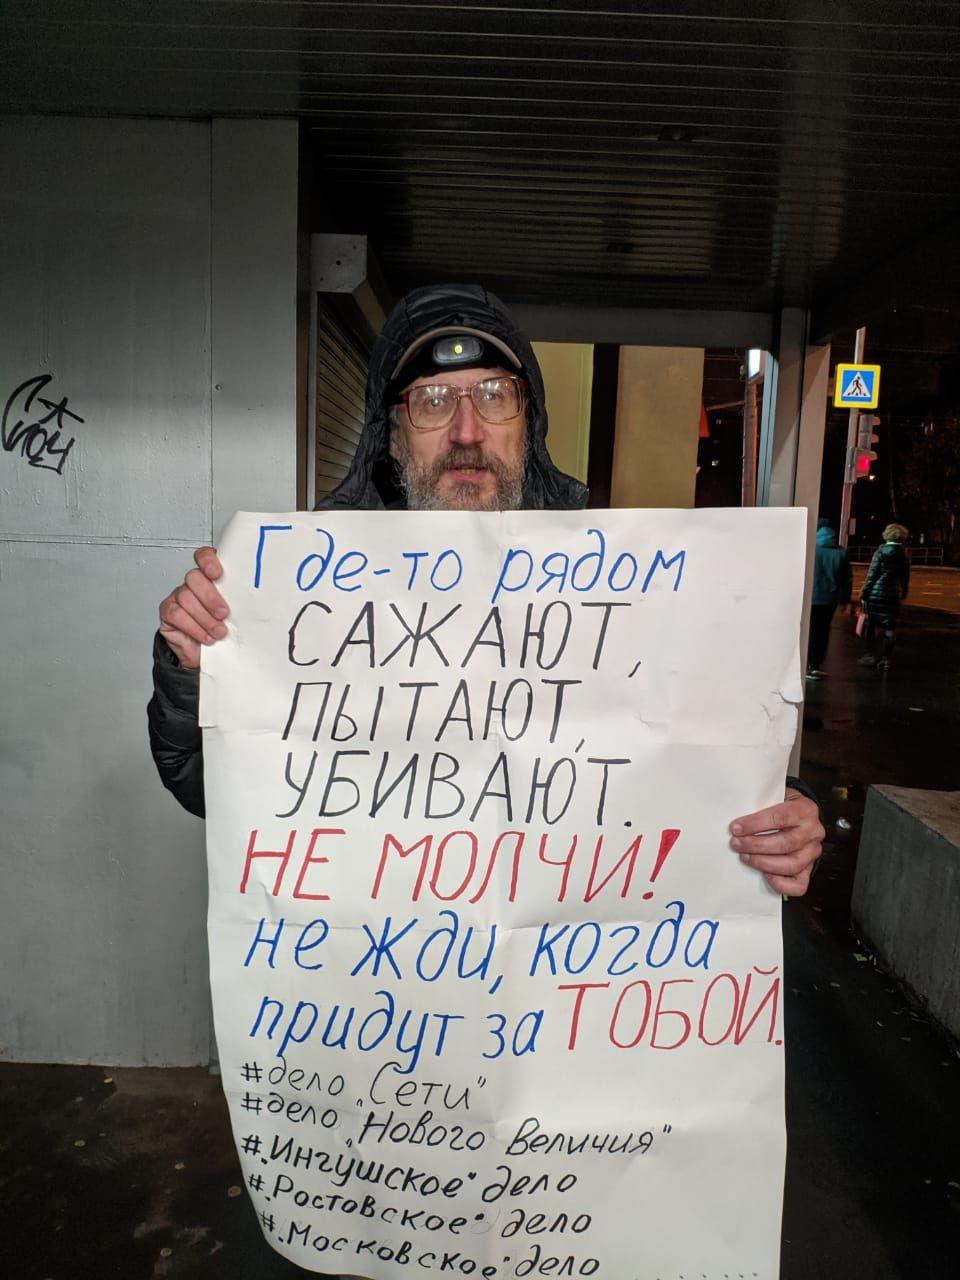 Где-то рядом
САЖАЮТ,
ПЫТАЮТ,
УБИВАЮТ.
НЕ МОЛЧИ!
не жди, когда
придут за ТОБОЙ.
#дело „Сети"
#дело „Нового Величия"
#„Ингушское" дело
#„Ростовское" дело
#„Московское" дело